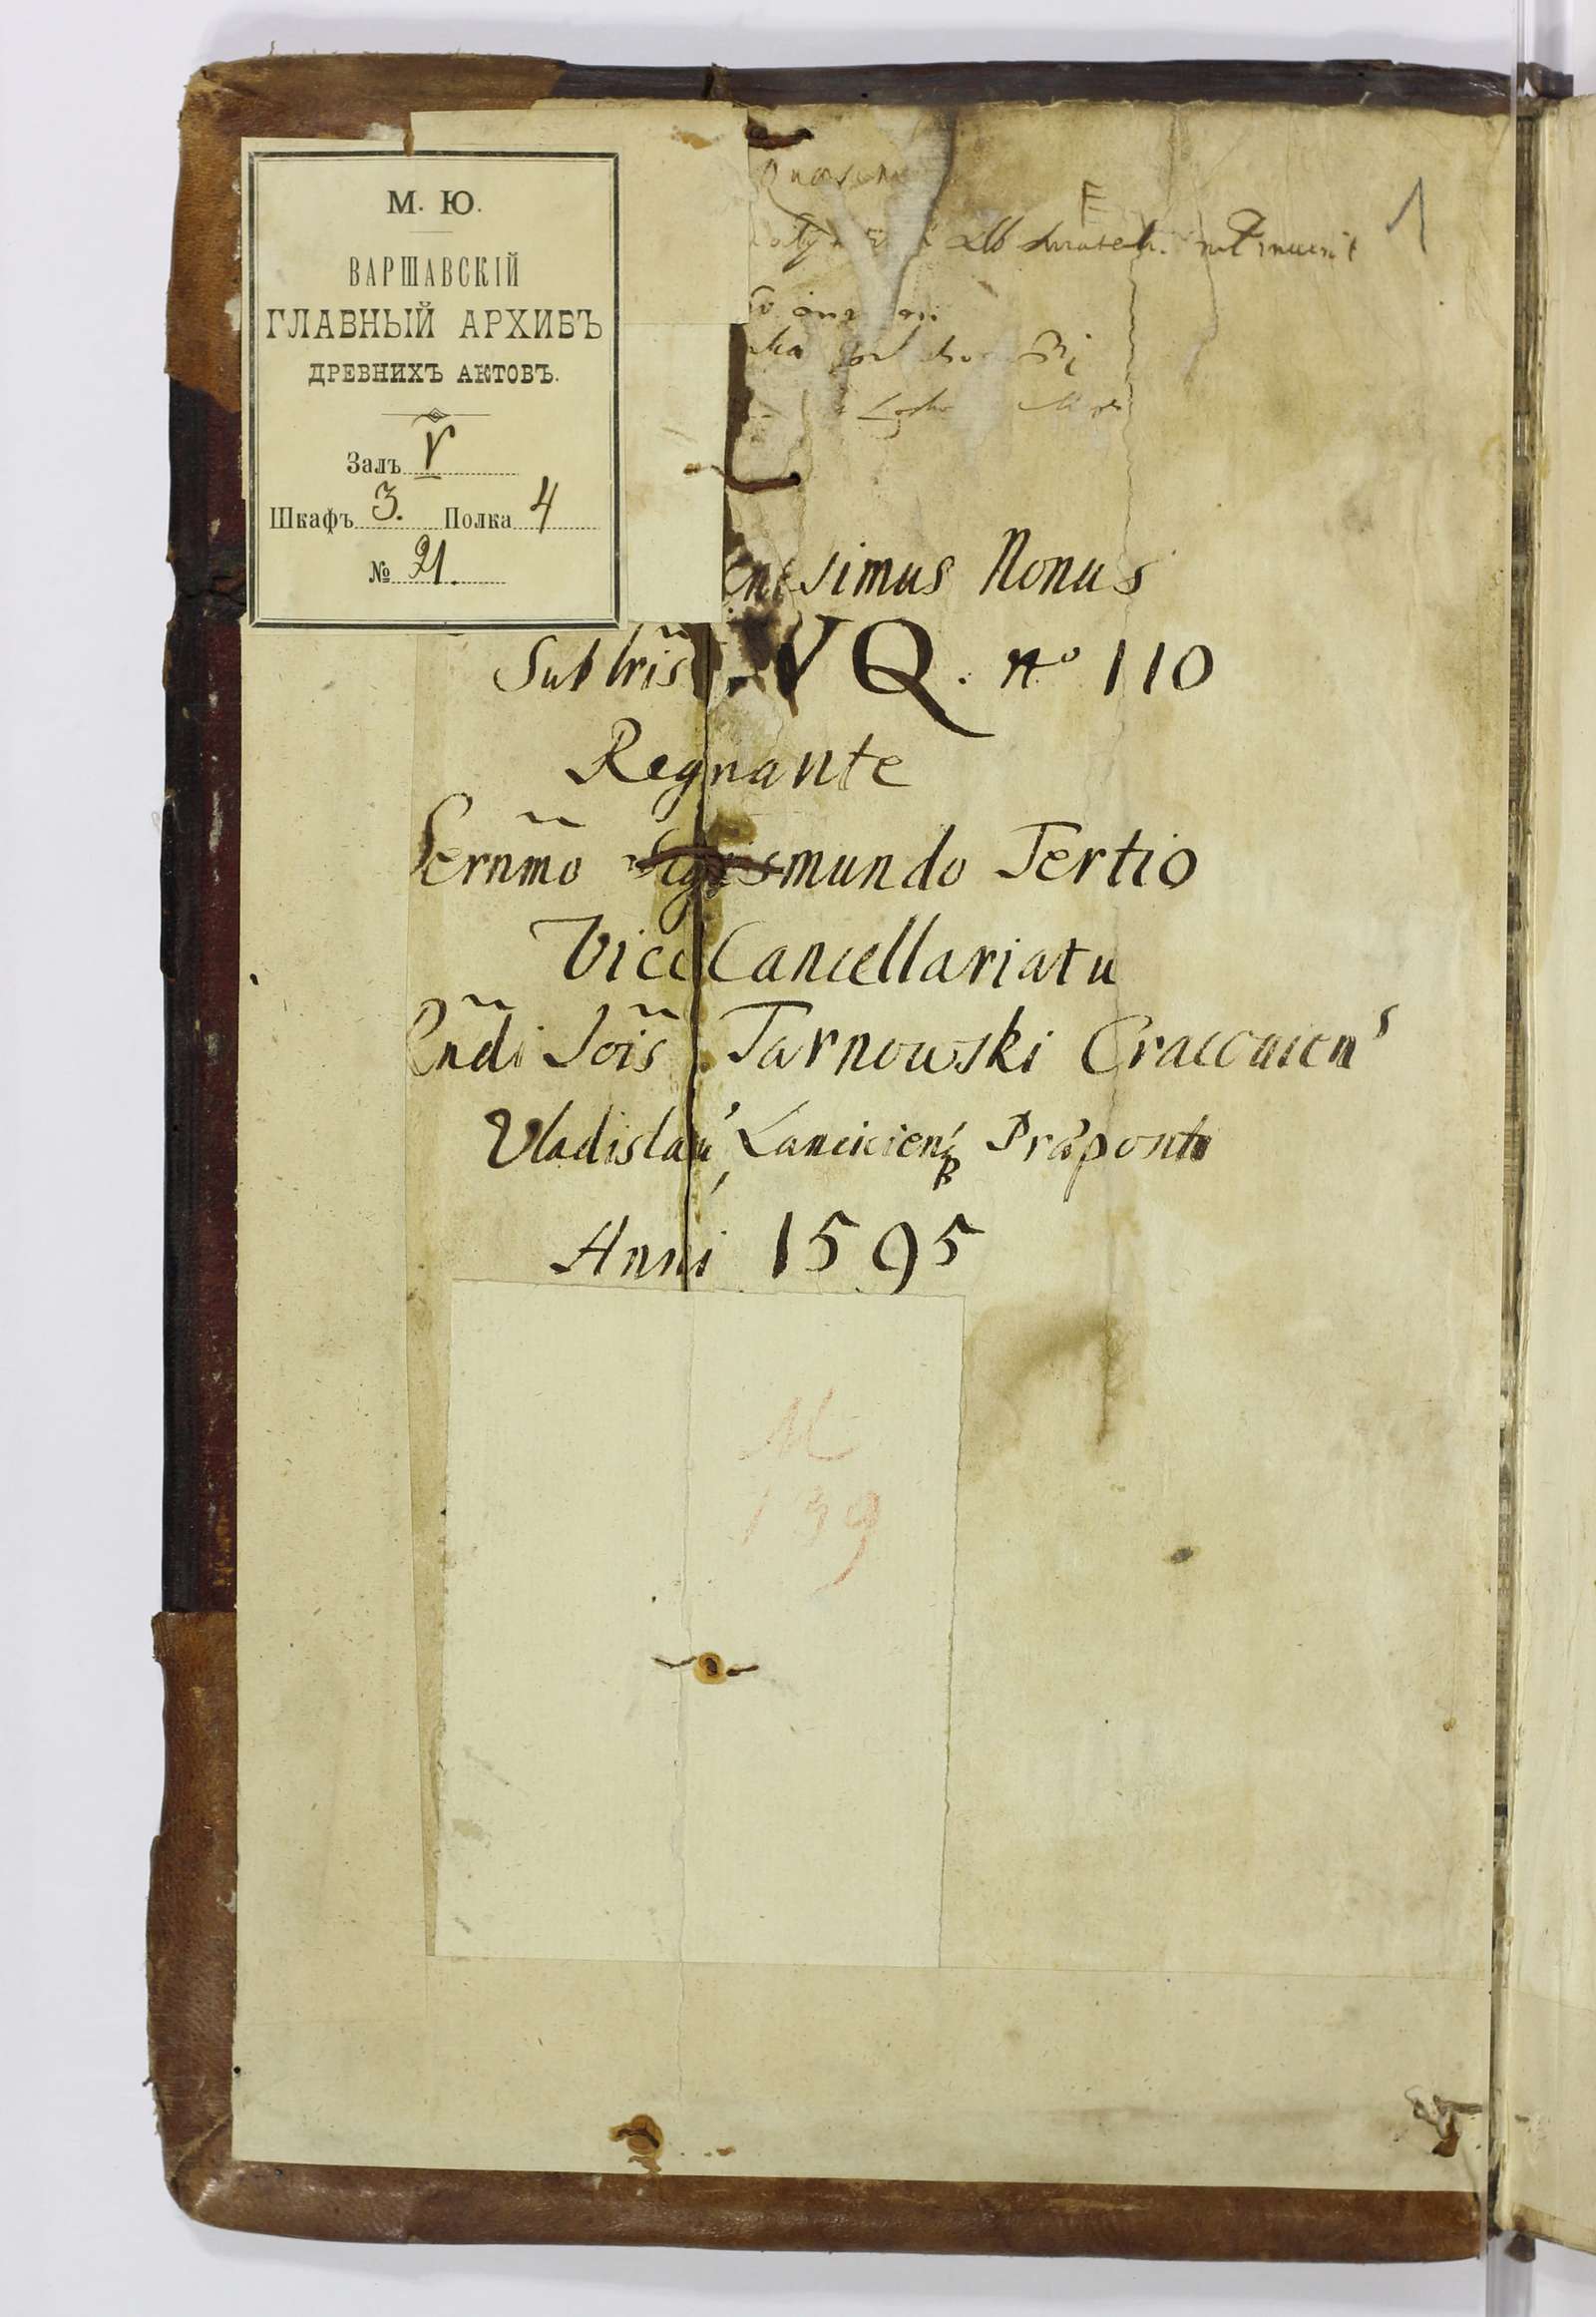 М. Ю.
ВАРШАВСКІЙ
ГЛАВНЫЙ АРХИВЪ
ДРЕВНИХЪ АКТОВЪ.
Залъ V
Шкафъ 3. Полка 4
№ 21.
1
esimus Nonus
Sub lris VQ. no 110
Regnante
Sernmo Sigismundo Tertio
ViceCancellariatu
Rndi Jois Tarnowski Cracouien
Vladislau, Lancicien Præpositi
Anni 1595
M
139